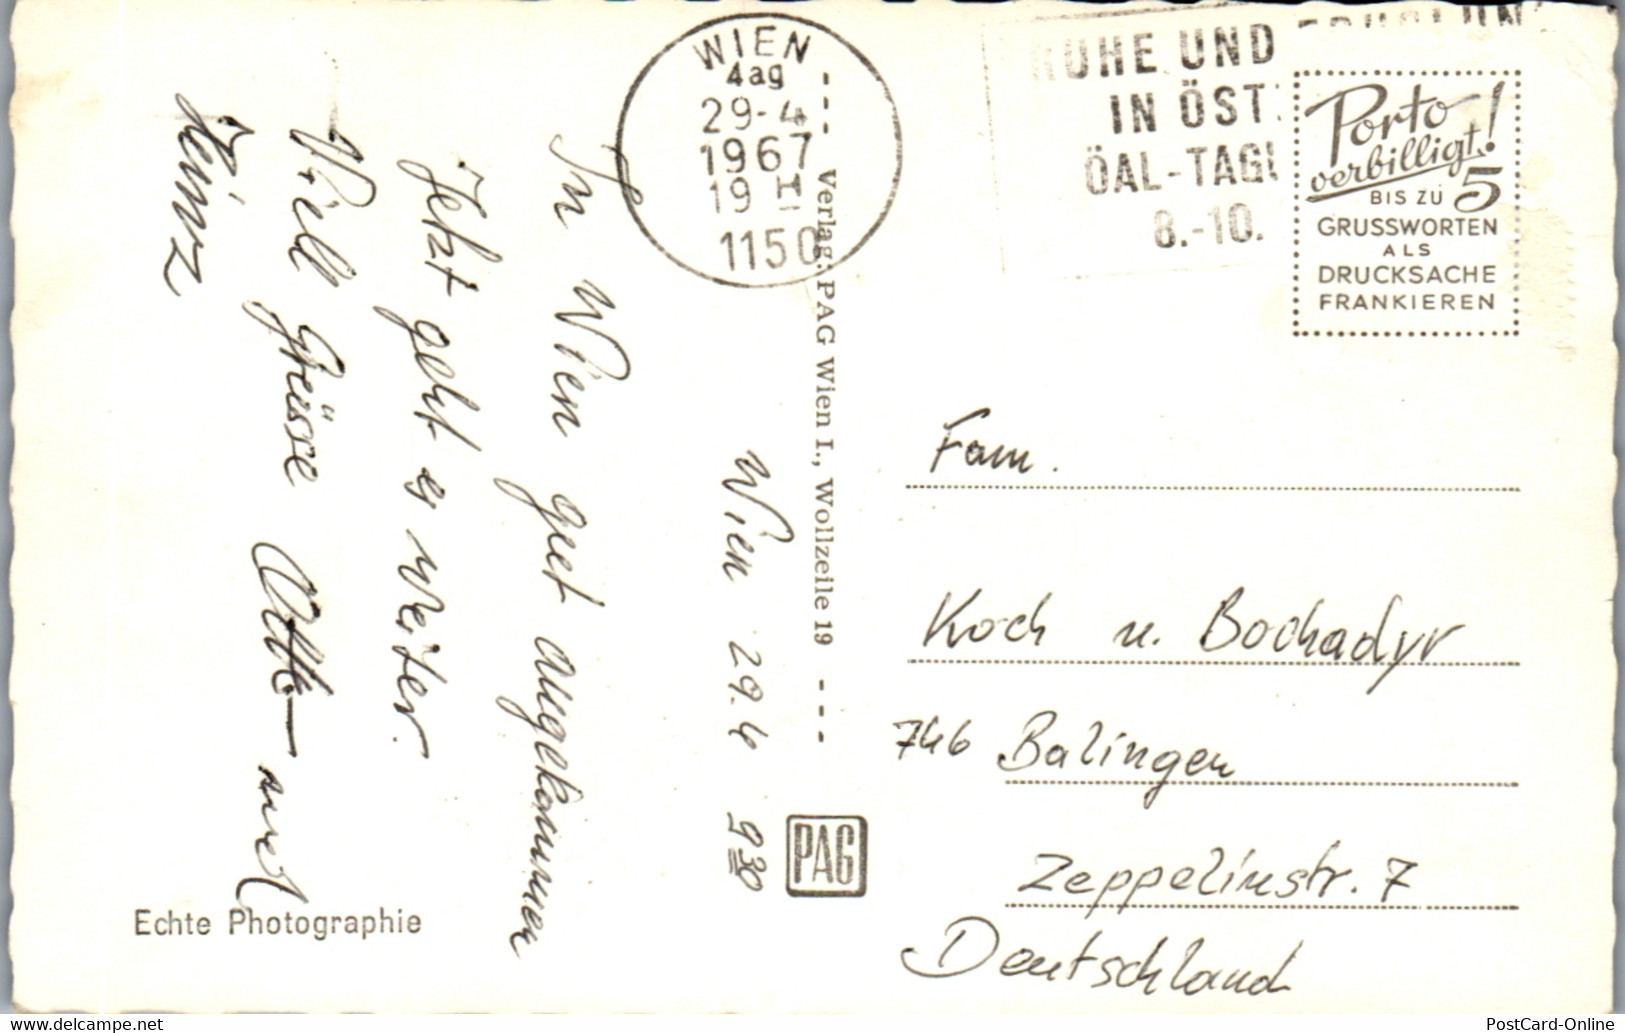 WIEN
4ag
29-4
1967
19 H
1150
RUHE UND
IN ÖST
ÖAL-TAGU
8.-10.
Porto
verbilligt!
BIS ZU 5
GRUSSWORTEN
ALS
DRUCKSACHE
FRANKIEREN
Wien 29.4 9 30
In Wien gut angekommen
Jetzt geht es weiter.
Viell Grüsse Otto und
Heinz
Echte Photographie
--- Verlag: PAG Wien I., Wollzeile 19 ---
PAG
Fam.
Koch u. Bochadyr
746 Balingen
Zeppelinstr. 7
Deutschland
PostCard-Online